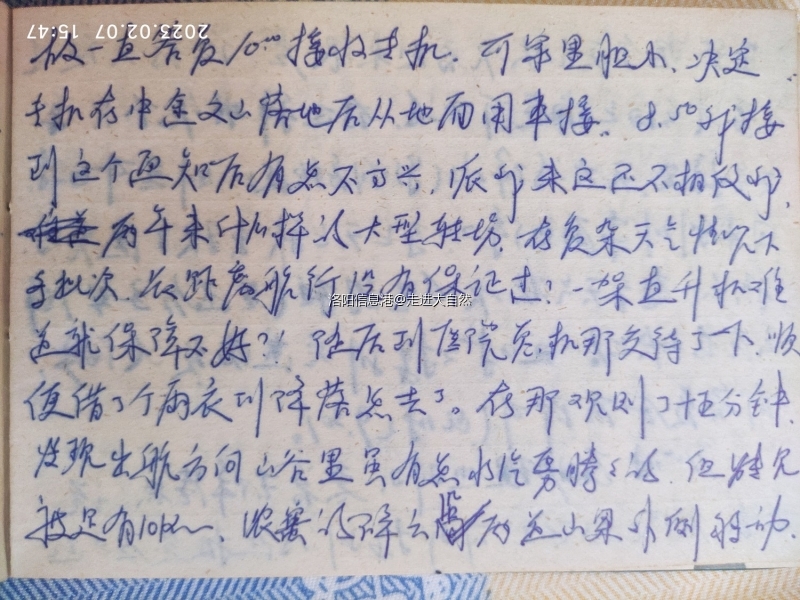 2023.02.07 15:47
故一直答复10⁰⁰接收专机。可军里胆小、决定
专机在中途文山落地后从地面用车接。8.50我接
到这个通知后有点不高兴,派我来这还不相信我,
两年来什么样的大型转场、在复杂天气情况下
多批次、长距离航行没有保证过?一架直升机难
道就保障不好?!随后到医院危机那交待了一下、顺
便借了个雨衣到降落点去了。在那观测了十五分钟,
发现出航方向山谷里虽有点水汽蒸腾的,但能见
度足有10km、浓密的降云向远山梁外侧移动。
洛阳信息港@走进大自然